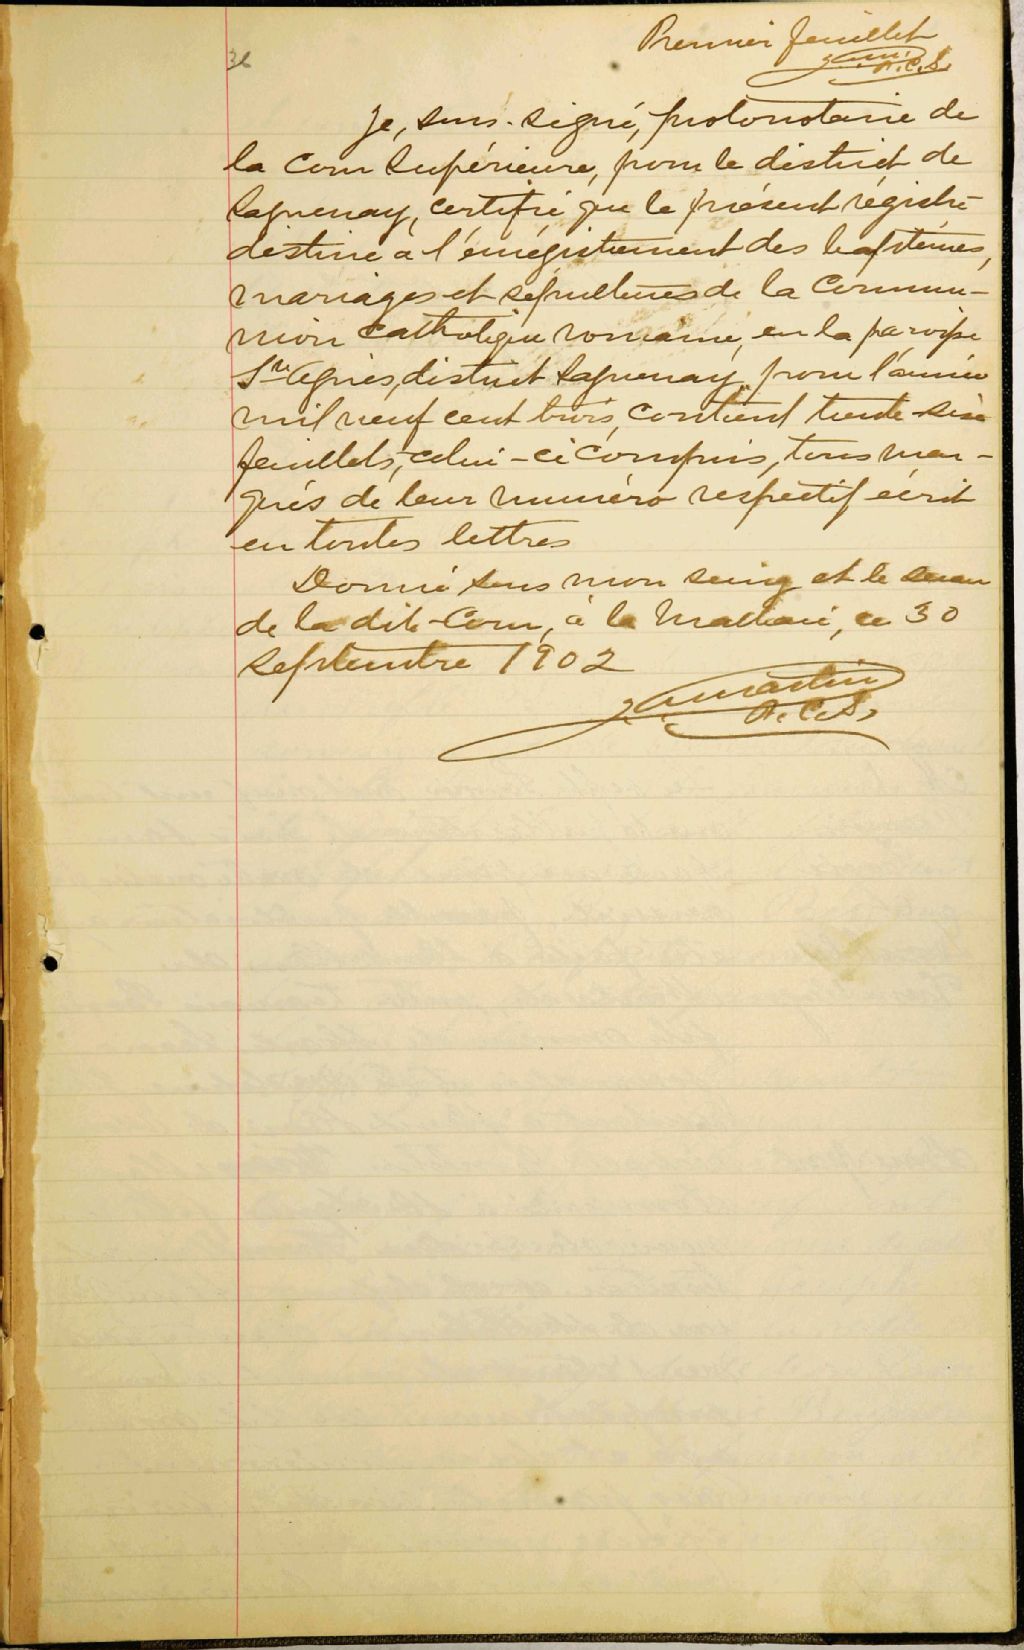 Premier feuillet
P.C.S.
Je, sous-signé, protonotaire de
la Cour Supérieure, pour le district de
Saguenay, certifie que le présent régistre
destiné a l'enrégistrement des baptêmes,
mariages et sépultures de la Commu-
nion Catholique romaine, en la paroisse
Ste Agnès, district Saguenay, pour l'année
mil neuf cent trois, contient trente-six
feuillets, celui-ci compris, tous mar-
qués de leur numéro respectif écrit
en toutes lettres
Donné sous mon seing et le sceau
de la dite Cour, à la Malbaie, ce 30
Septembre 1902
Martin
P.C.S.